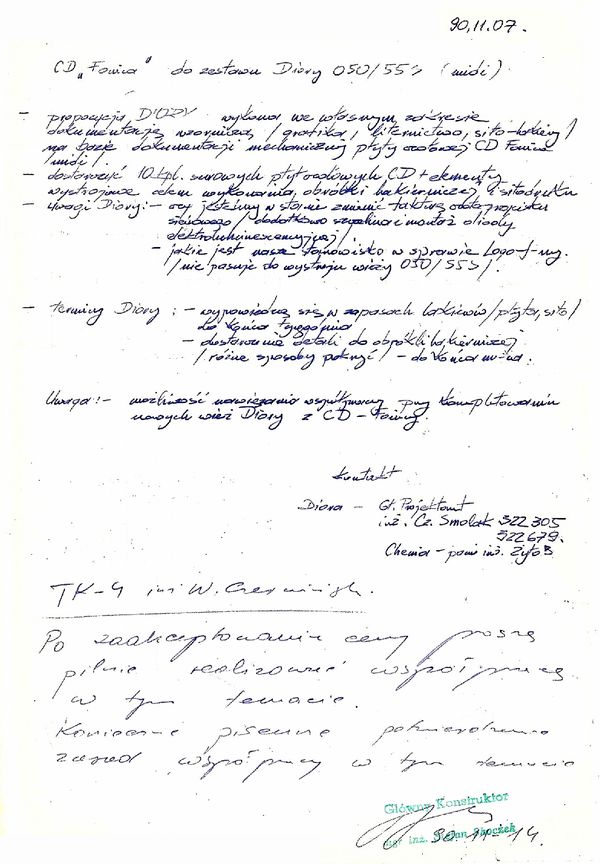 90.11.07.
CD „Fonica" do zestawu Diory 050/55S (midi)
- propozycja DIORY wykona we własnym zakresie
dokumentację wzorniczą /grafika, liternictwo, sito-lakiery/
na bazie dokumentacji mechanicznej płyty czołowej CD Fonica
/midi/.
- dostarczyć 10 kpl. surowych płyt czołowych CD + elementy
wystrojowe celem wykonania obróbki lakierniczej i sitodruku
- Uwagi Diory: - czy jesteśmy w stanie zmienić fakturę
/dodatkowo i montaż diody
elektroluminescencyjnej/
- jakie jest nasze stanowisko w sprawie Logo f-my.
/nie pasuje do wystroju wieży 050/55S/.
- terminy Diory: - wypowiedzą się w zapasach lakierów /płyta, sito/
do końca tygodnia
- dostarczenie detali do obróbki lakierniczej
/różne sposoby pokryć/ - do końca m-ca.
Uwaga: - możliwość nawiązania współpracy przy kompletowaniu
nowych wież Diory z CD - Fonicy.
Kontakt
Diora - Gł. Projektant
inż. Cz. Smolak 522 305
522679.
Chemia - pani inż.
TK-4 inż W.
Po zaakceptowaniu ceny proszę
pilnie realizować współpracę
w tym temacie.
Konieczne pisemne potwierdzenie
zasad współpracy w tym temacie
Główny Konstruktor
mgr inż.
90-11-14.